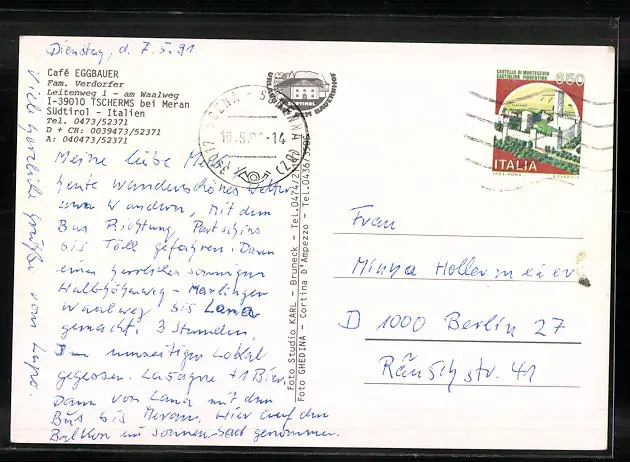 Dienstag, d. 7.5.91
Café EGGBAUER
Fam. Verdorfer
Leitenweg 1 - am Waalweg
I-39010 TSCHERMS bei Meran
Südtirol - Italien
Tel. 0473/52371
D + CH: 0039473/52371
A: 040473/52371
Meine liebe
heute wunderschönes Wetter
zum Wandern, mit dem
Bus Richtung, Partschins
bis Töll gefahren. Dann
einen herrlichen sonnigen
Halbhöhenweg - Marlinger
Waalweg bis Lana
gemacht. 3 Stunden
Im umseitigen Lokal
gegessen. Lasagne + 1 Bier.
Dann von Lana mit dem
Bus bis Meran. Hier auf dem
Balkon ein Sonnenbad genommen.
Viele herzliche Grüße von
Foto Studio KARL - Bruneck - Tel. 0474
Foto GHEDINA - Cortina D'Ampezzo - Tel. 0436
SÜDTIROL
LANA
10.5. -14
39011
(BZ)
CASTELLO DI MONTECCHIO
CASTIGLION FIORENTINO
650
ITALIA
Frau
Minna Hollermeier
D 1000 Berlin 27
Räuschstr. 41